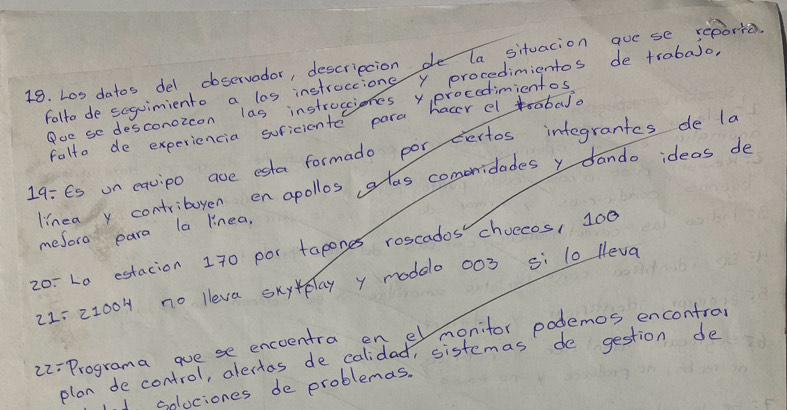 18. Los datos del observador, descripcion de la situacion que se reporta.
Falta de seguimiento a los instruccione y procedimientos de trabajo,
Que se desconozcan las instrucciones y procedimientos
falta de experiencia suficiente para hacer el trabajo
19= Es un equipo que esta formado por ciertos integrantes de la
línea y contribuyen en apollos, a las comonidades y dando ideas de
mejora para la línea.
20= La estacion 170 por tapones roscados chuecos, 100
21= 21004 no lleva skyxplay y modolo 003 si lo lleva
22= Programa que se encuentra en el monitor podemos encontrar
plan de control, alertas de calidad, sistemas de gestion de
soluciones de problemas.